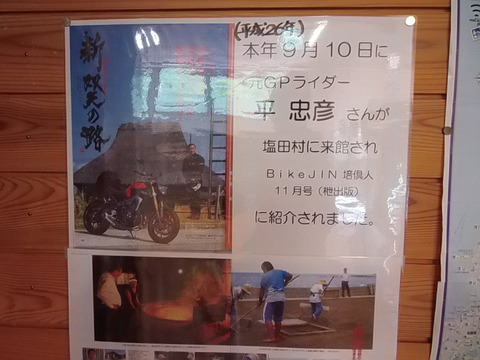 (平成26年)
本年9月10日に
元GPライダー
平 忠彦 さんが
塩田村に来館され
BikeJIN 培倶人
11月号(枻出版)
に紹介されました。